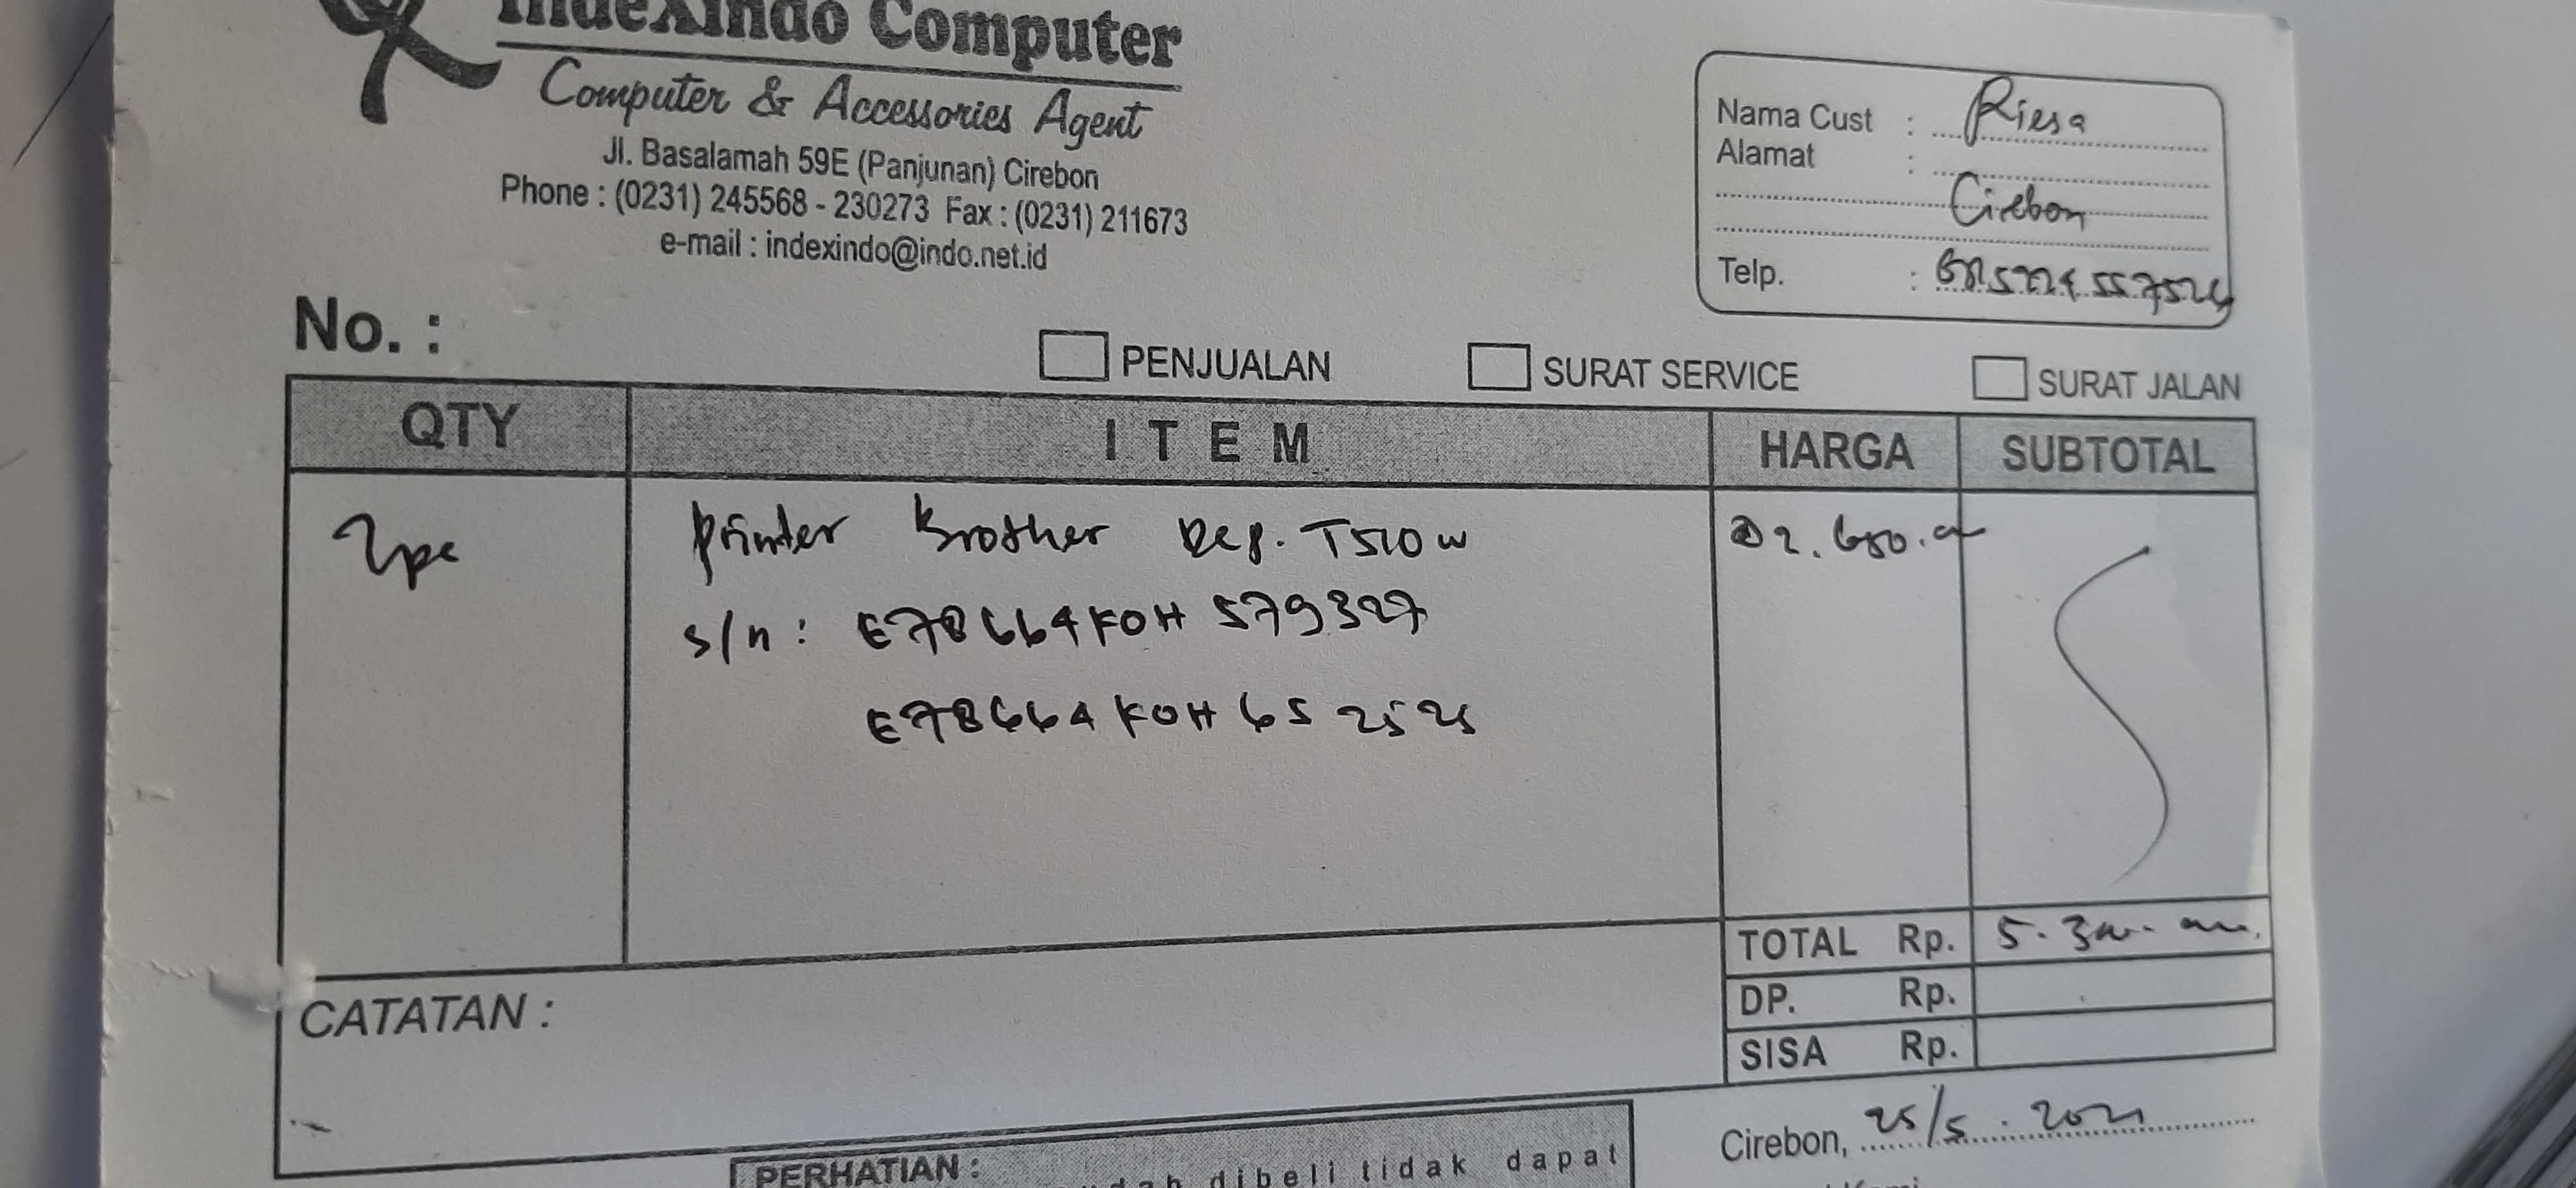 IndeXindo Computer
Computer & Accessories Agent
Jl. Basalamah 59E (Panjunan) Cirebon
Phone : (0231) 245568 - 230273 Fax : (0231) 211673
e-mail : indexindo@indo.net.id
Nama Cust : Riesa
Alamat :
Cirebon
Telp. :
No. :
PENJUALAN SURAT SERVICE SURAT JALAN
QTY ITEM HARGA SUBTOTAL
2pc Printer Brother Dcp. T510w @ 2.650.
s/n : E78664K0H579327
E78664K0H652525
TOTAL Rp. 5.300.000.
DP. Rp.
SISA Rp.
CATATAN :
Cirebon, 25/5.2021
PERHATIAN :
dibeli tidak dapat